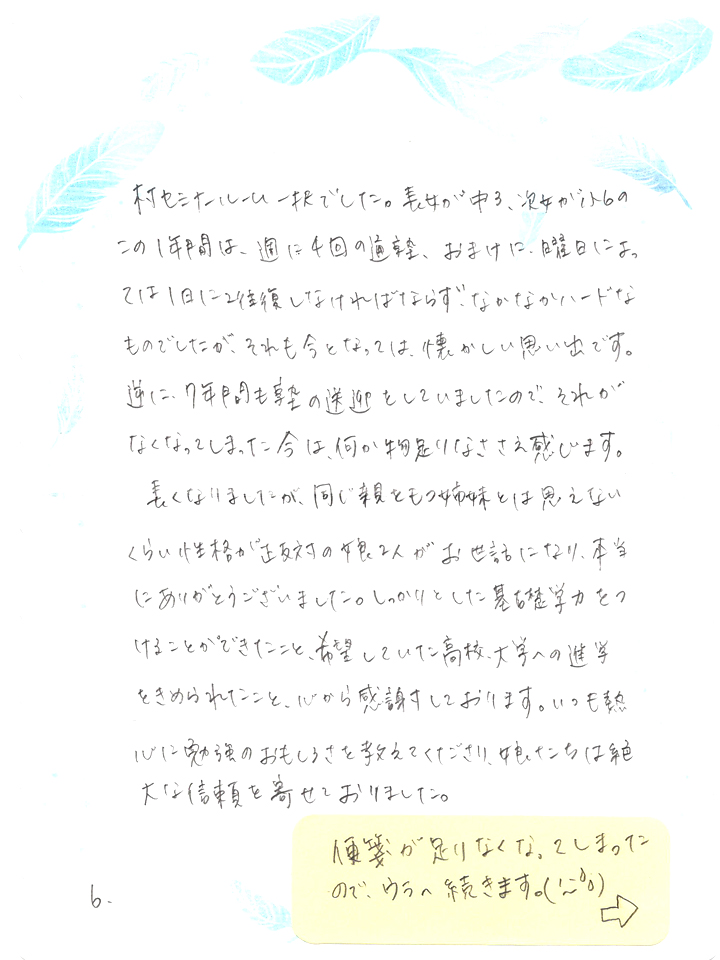 村セミナールーム一択でした。長女が中3、次女が小6の
この1年間は、週に4回の通塾、おまけに、日曜日によっ
ては1日に2往復しなければならず、なかなかハードな
ものでしたが、それも今となっては、懐かしい思い出です。
逆に、7年間も塾の送迎をしていましたので、それが
なくなってしまった今は、何か物足りなささえ感じます。
長くなりましたが、同じ親をもつ姉妹とは思えない
くらい性格が正反対の娘2人がお世話になり、本当
にありがとうございました。しっかりとした基礎学力をつ
けることができたこと、希望していた高校、大学への進学
をきめられたこと、心から感謝しております。いつも熱
心に勉強のおもしろさを教えてくださり、娘たちは絶
大な信頼を寄せておりました。
便箋が足りなくなってしまった
ので、ウラへ続きます。(^~^;)
6.